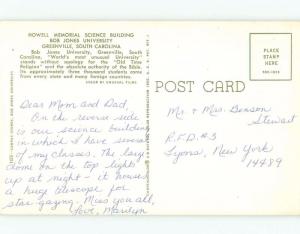 HOWELL MEMORIAL SCIENCE BUILDING
BOB JONES UNIVERSITY
GREENVILLE, SOUTH CAROLINA
Bob Jones University, Greenville, South
Carolina, "World's most unusual University"
stands without apology for the "Old Time
Religion" and the absolute authority of the Bible.
Its approximately three thousand students come
from every state and many foreign countries.
PLACE
STAMP
HERE
POST CARD
Dear Mom and Dad,
On the reverse side
is our science building
in which I have several
of my classes. The large
dome on the top lights
up at night - it houses
a huge telescope for
star gazing. Miss you all,
Love, Marilyn
Mr. + Mrs. Benson
Stewart
R.F.D. #3
Lyons, New York
14489